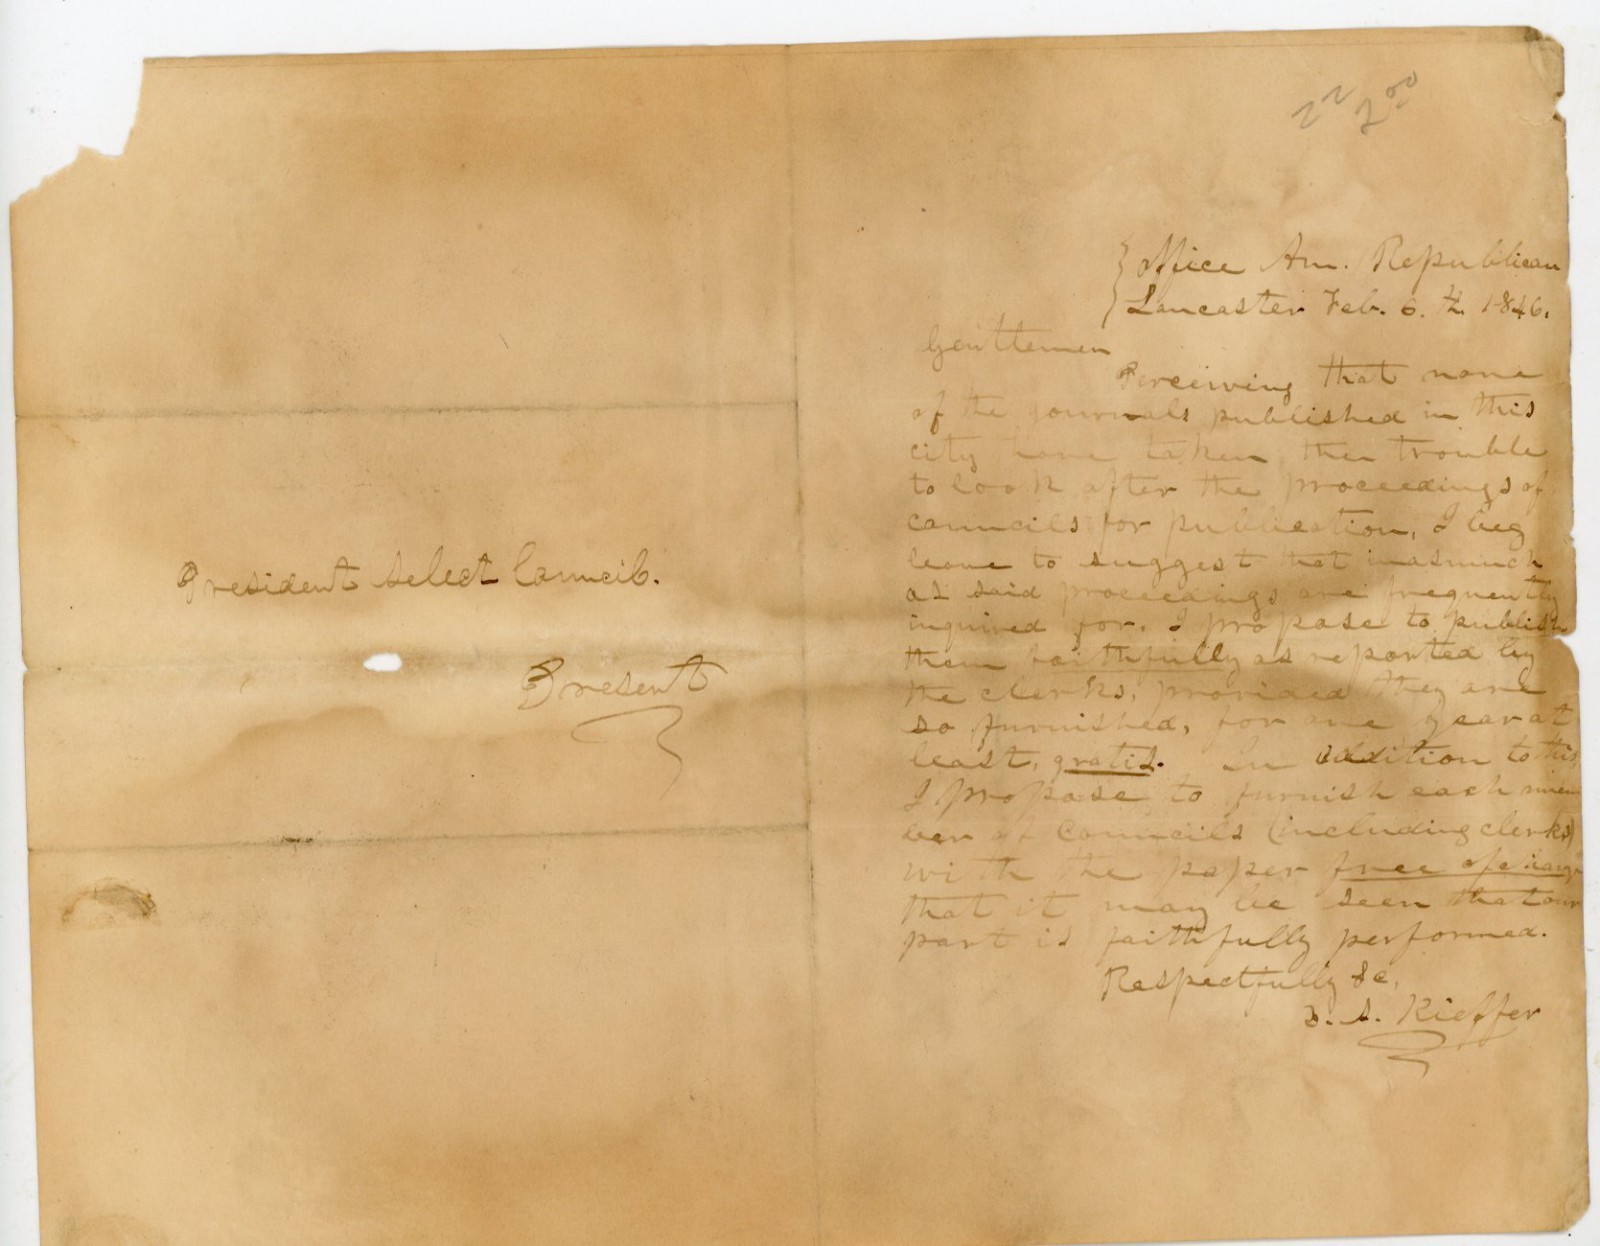 President select Council.
Present
22 2 00
Office Am. Republican
Lancaster Feb. 6. th. 1846.
Gentlemen
Perceiving that none
of the journals published in this
city have taken the trouble
to look after the proceedings of
councils for publication, I beg
leave to suggest that inasmuch
as said proceedings are frequently
inquired for, I propose to publish
them faithfully as reported by
the clerks, provided they are
so furnished, for one year at
least, gratis. In addition to this,
I propose to furnish each mem
ber of Councils (including clerks)
with the paper free of charge
that it may be seen that our
part is faithfully performed.
Respectfully &c,
Kieffer